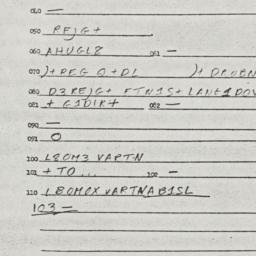 040 —
050 REJG+
060 AHUGL8 061 —
070 )+REG Q+DL )+ DRUEN
080 D3REJG+ FTN1S+LANE1DOV
081 + G1DIR+ 082 —
090 —
091 O
100 L8OM3 VARTN
101 + TO... 102 —
110 L8OMOX VARTNAB1SL
103 —